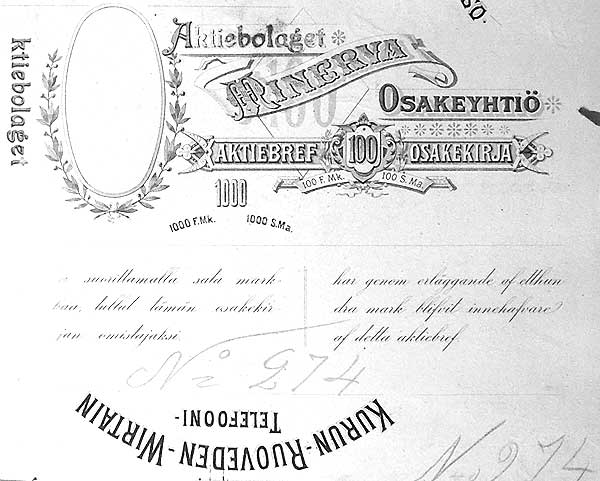 Aktiebolaget
MINERVA
100
OSAKEYHTIÖ
AKTIEBREF 100 OSAKEKIRJA
100 F. Mk. 100 S. Ma.
1000
1000 F. Mk. 1000 S. Ma.
ktiebolaget
suorittamalla sata mark-
kaa, tullut tämän osakekir
jan omistajaksi.
har genom erläggande af etthun
dra mark blifvit innehafvare
af detta aktiebref.
No 274
KURUN-RUOVEDEN-WIRTAIN
TELEFOONI-
No 274